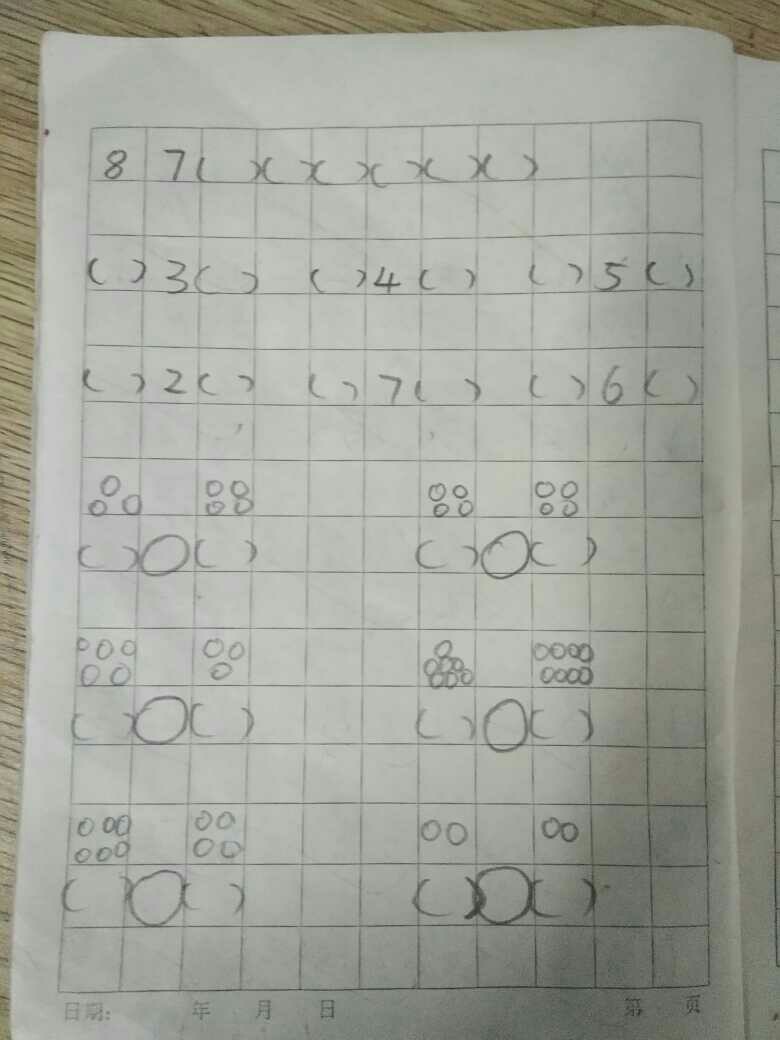 8 7 ( ) ( ) ( ) ( ) ( ) ( )
( ) 3 ( ) ( ) 4 ( ) ( ) 5 ( )
( ) 2 ( ) ( ) 7 ( ) ( ) 6 ( )
( ) ○ ( ) ( ) ○ ( )
( ) ○ ( ) ( ) ○ ( )
( ) ○ ( ) ( ) ○ ( )
日期: 年 月 日 第 页